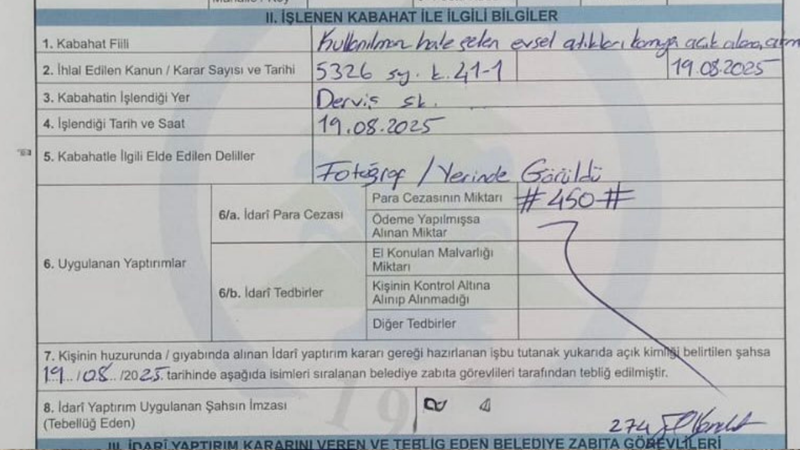 II. İŞLENEN KABAHAT İLE İLGİLİ BİLGİLER
1. Kabahat Fiili Kullanılmaz hale gelen evsel atıkları kamuya açık alana
2. İhlal Edilen Kanun / Karar Sayısı ve Tarihi 5326 sy. k. 41-1 19.08.2025
3. Kabahatin İşlendiği Yer Derviş sk.
4. İşlendiği Tarih ve Saat 19.08.2025
5. Kabahatle İlgili Elde Edilen Deliller Fotoğraf / Yerinde Görüldü
6. Uygulanan Yaptırımlar
6/a. İdarî Para Cezası
Para Cezasının Miktarı #450-#
Ödeme Yapılmışsa
Alınan Miktar
6/b. İdarî Tedbirler
El Konulan Malvarlığı
Miktarı
Kişinin Kontrol Altına
Alınıp Alınmadığı
Diğer Tedbirler
7. Kişinin huzurunda / gıyabında alınan İdarî yaptırım kararı gereği hazırlanan işbu tutanak yukarıda açık kimliği belirtilen şahsa
19../08../2025. tarihinde aşağıda isimleri sıralanan belediye zabıta görevlileri tarafından tebliğ edilmiştir.
8. İdarî Yaptırım Uygulanan Şahsın İmzası
(Tebellüğ Eden)
274
III. İDARİ YAPTIRIM KARARINI VEREN VE TEBLİĞ EDEN BELEDİYE ZABITA GÖREVLİLERİ